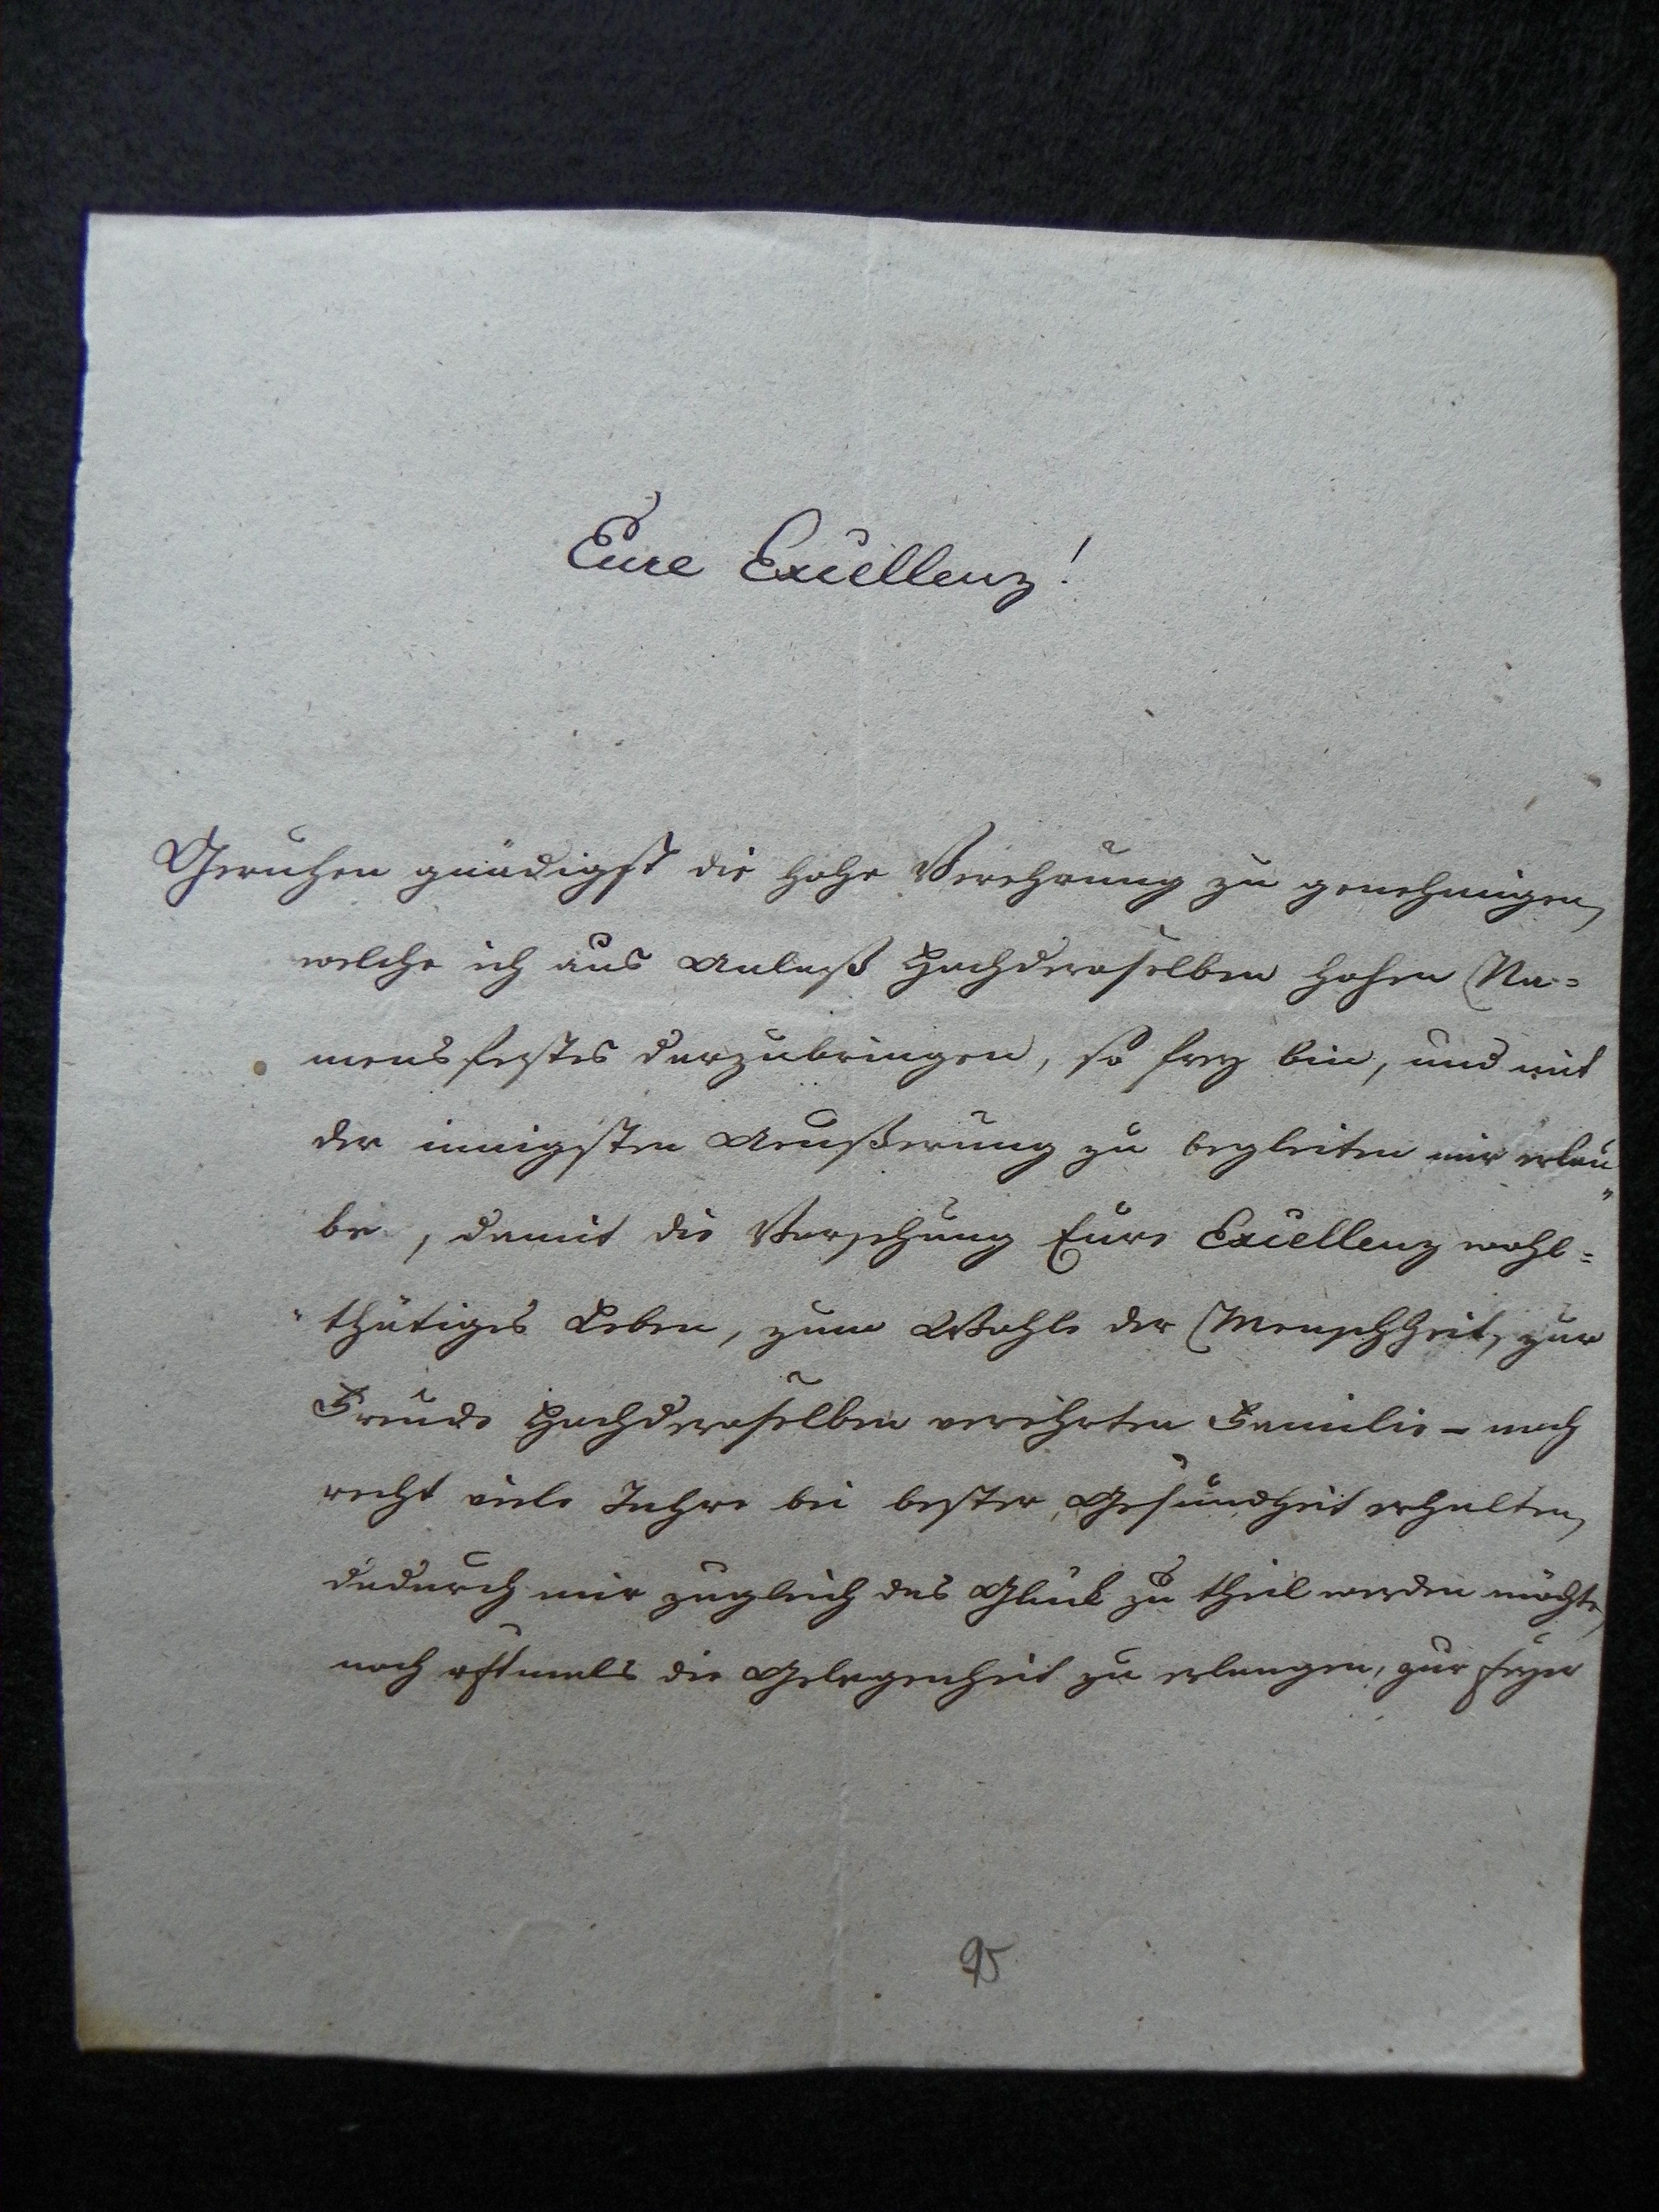 Eure Excellenz!
Geruhen gnädigst die hohe Verehrung zu genehmigen,
welche ich aus Anlaß Hochderoselben hohen Na=
mensfestes darzubringen, so frey bin, und mit
der innigsten Aeußerung zu begleiten mir erlau„
be, damit die Vorsehung Eure Excellenz wohl=
„thätiges Leben, zum Wohle der Menschheit, zur
Freude Hochderoselben verehrten Familie – noch
recht viele Jahre bei bester Gesundheit erhalten,
dadurch mir zugleich das Glück zu theil werden möchte,
noch oftmals die Gelegenheit zu erlangen, zur Feyer